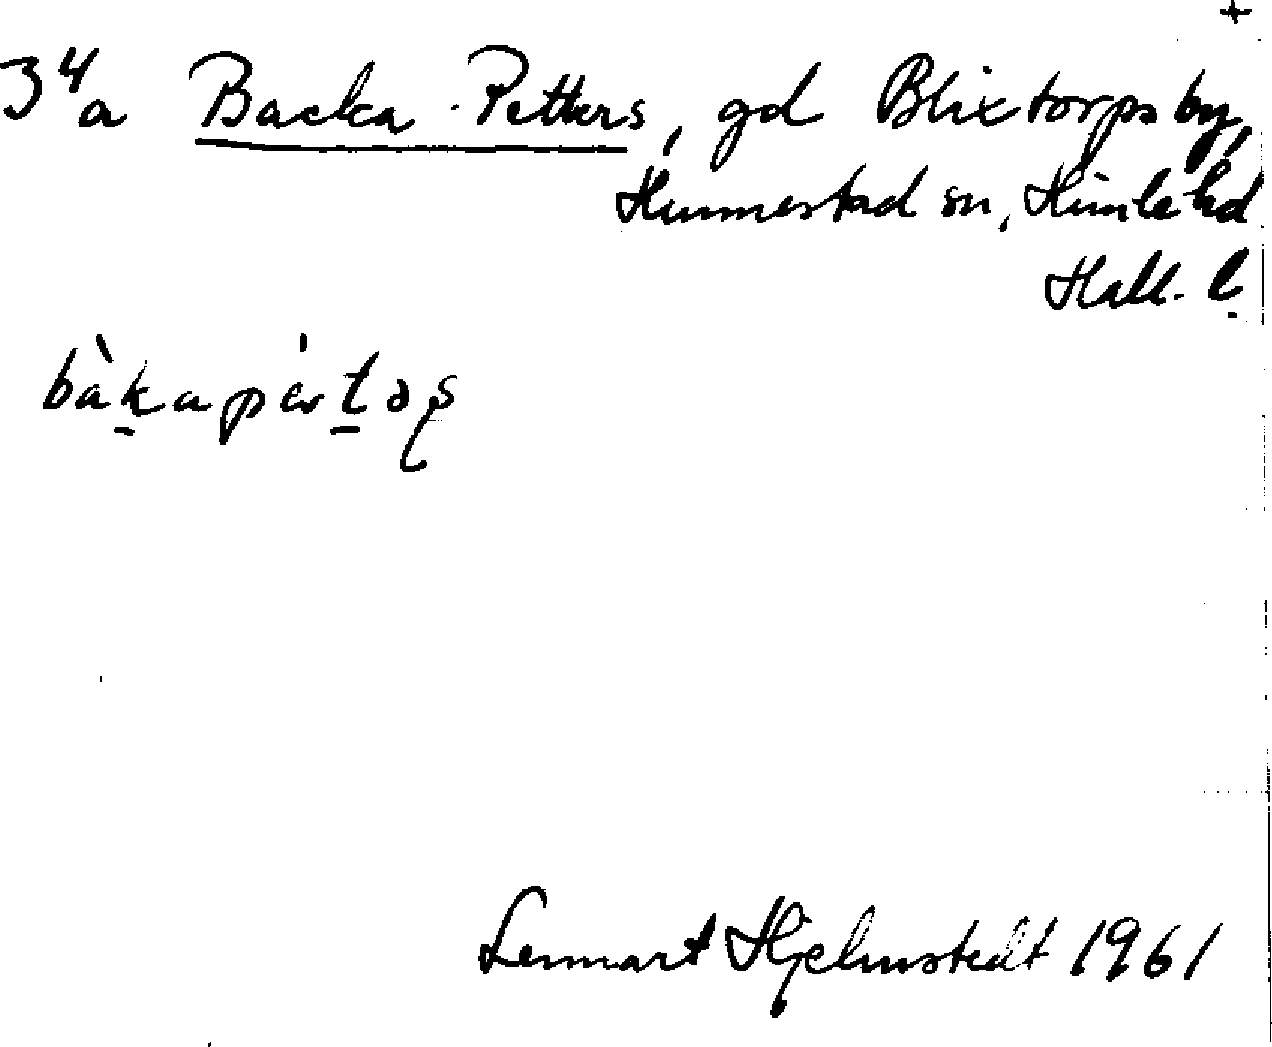 +
3⁴a Backa-Petters, gd Blixtorps by,
Hunnestad sn, Himle hd
Hall. l.
Lennart Hjelmstedt 1961